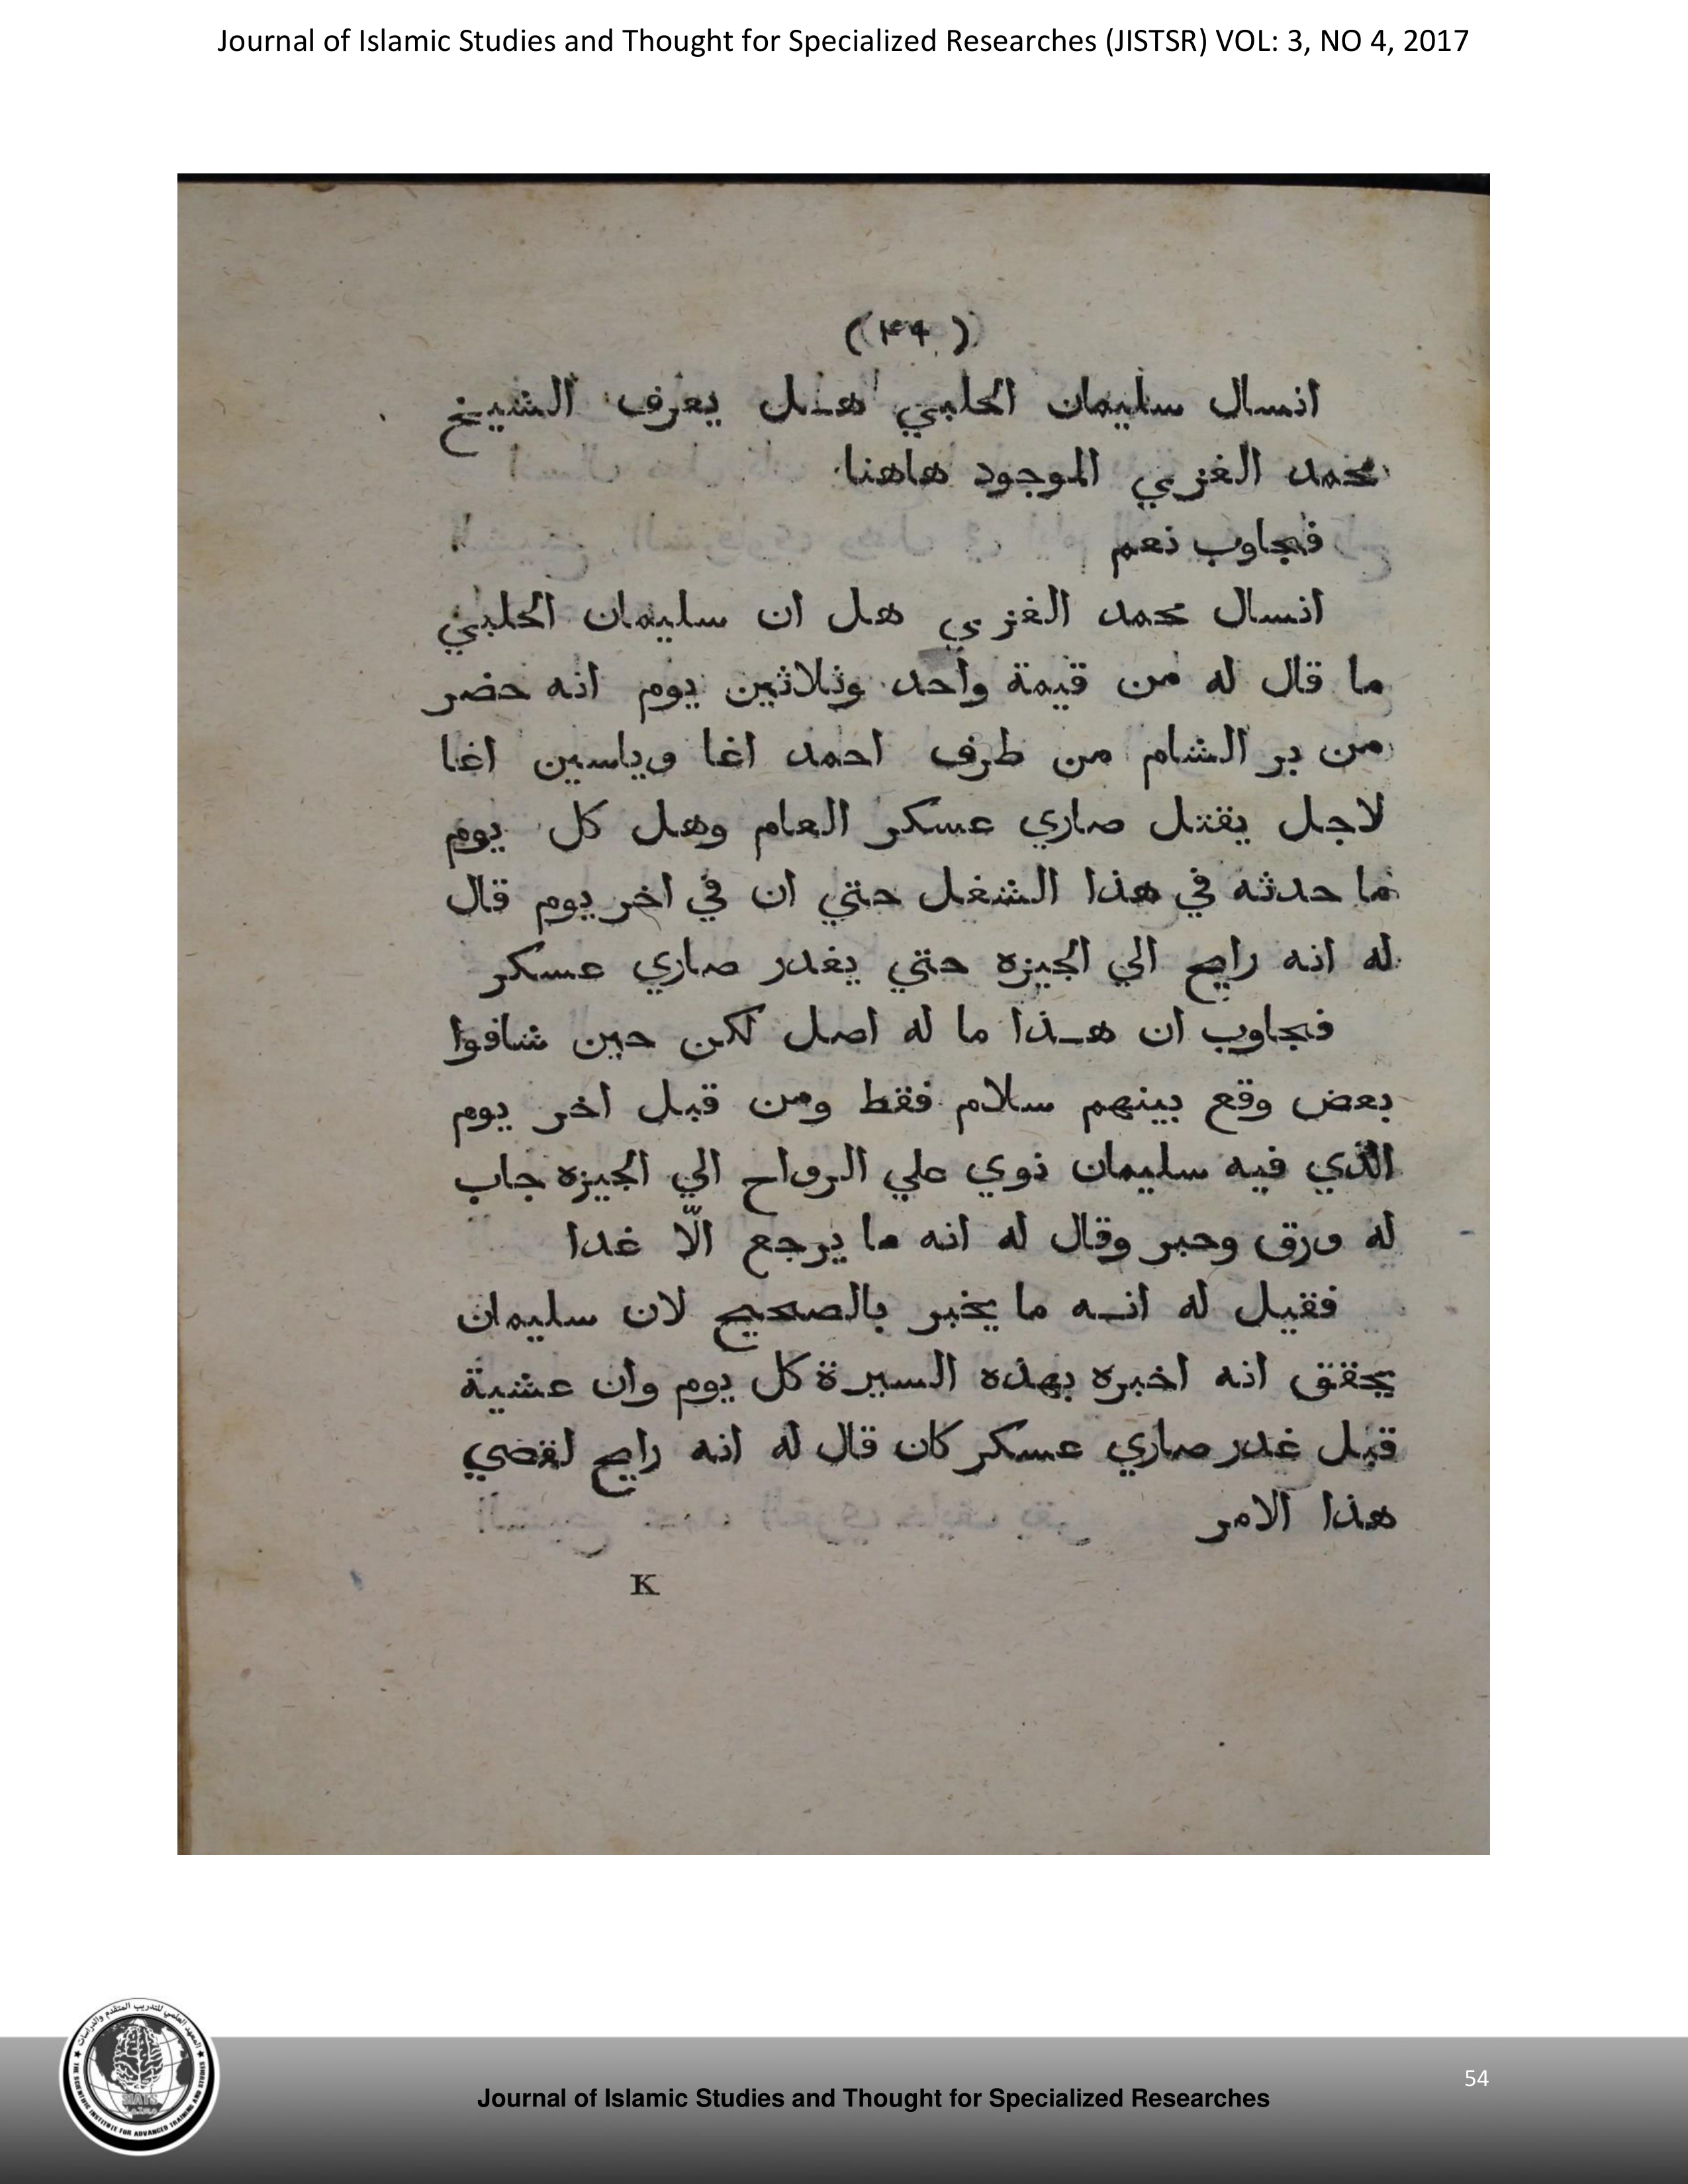 Journal of Islamic Studies and Thought for Specialized Researches (JISTSR) VOL: 3, NO 4, 2017
انسال سليمان الحلبي هـل يعرف الشيخ
محمد الغزي الموجود هاهنا
فجاوب نعم
انسال محمد الغزي هل ان سليمان الحلبي
ما قال له من قيمة واحد وثلاثين يوم انه حضر
من بر الشام من طرف احمد اغا وياسين اغا
لاجل يقتل صاري عسكر العام وهل كل يوم
ما حدثه في هذا الشغل حتي ان في اخر يوم قال
له انه رايح الي الجيزه حتي يغدر صاري عسكر
فجاوب ان هـذا ما له اصل لكن حين شافوا
بعض وقع بينهم سلام فقط ومن قبل اخر يوم
الذي فيه سليمان نوي علي الرواح الي الجيزه جاب
له ورق وحبر وقال له انه ما يرجع الّا غدا
فقيل له انـه ما يخبر بالصحيح لان سليمان
يحقق انه اخبره بهذه السيرة كل يوم وان عشية
قبل غدر صاري عسكر كان قال له انه رايح لقضي
هذا الامر
K
54
Journal of Islamic Studies and Thought for Specialized Researches
المعهد العلمي للتدريب المتقدم والدراسات
THE SCIENTIFIC INSTITUTE FOR ADVANCED TRAINING AND STUDIES
SIATS